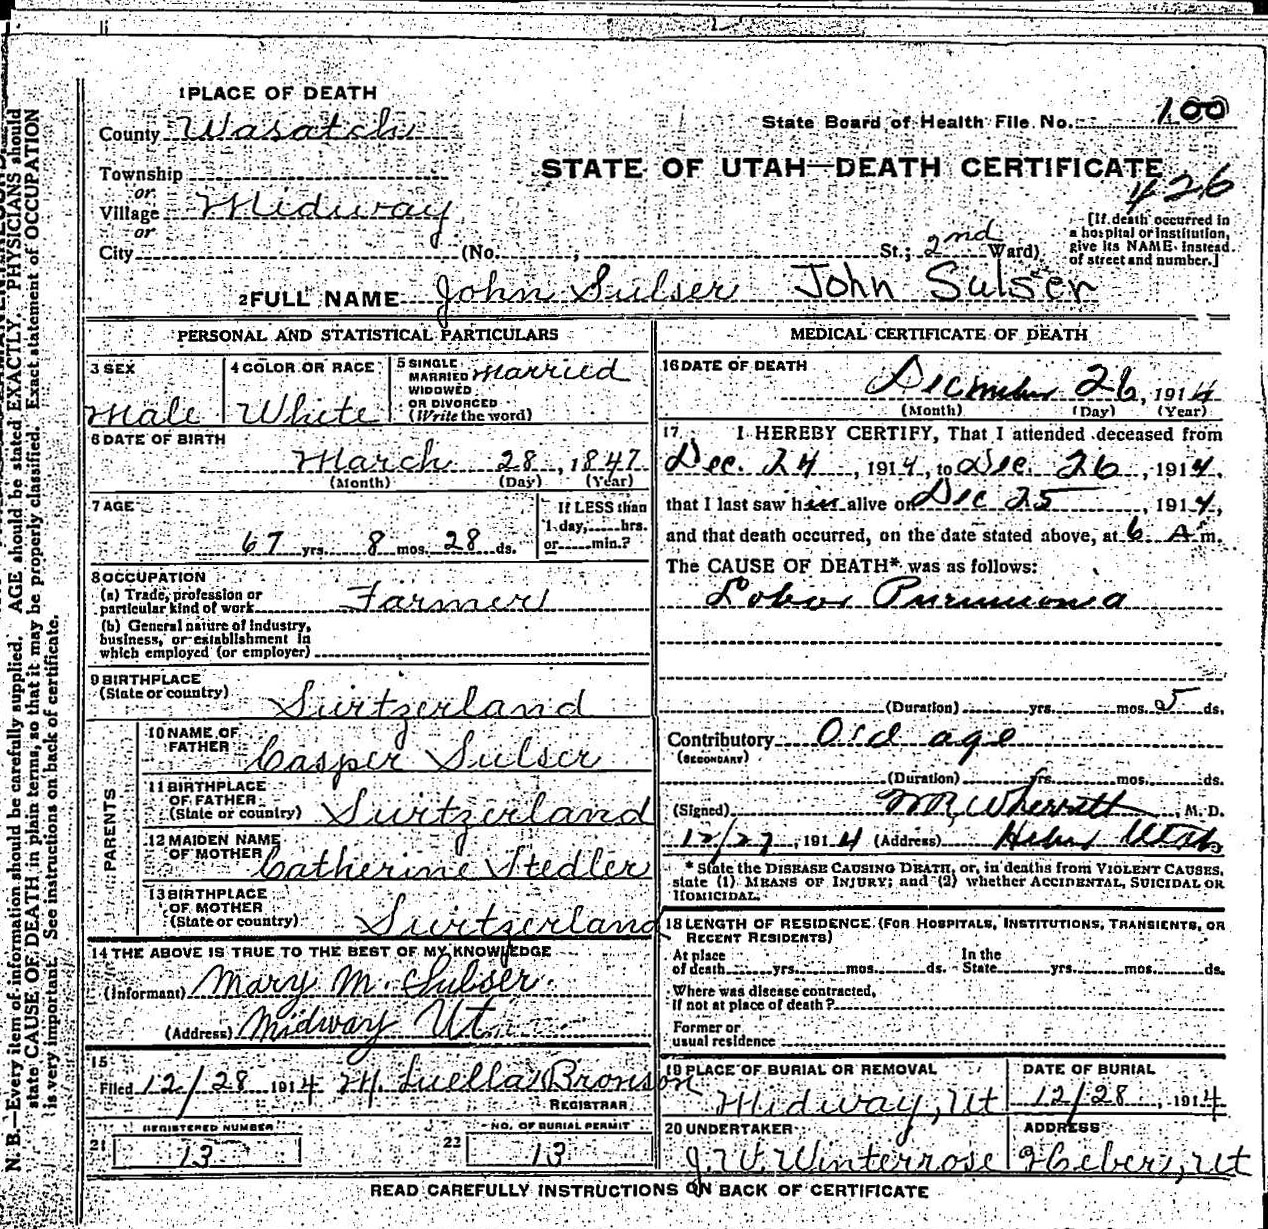 1 PLACE OF DEATH
County Wasatch
State Board of Health File No. 100
STATE OF UTAH—DEATH CERTIFICATE
426
Township
or
Village Midway
or
City (No. , St.; 2nd Ward)
[If death occurred in
a hospital or institution,
give its NAME instead
of street and number.]
2 FULL NAME John Sulser John Sulser
PERSONAL AND STATISTICAL PARTICULARS
3 SEX
Male
4 COLOR OR RACE
White
5 SINGLE
MARRIED
WIDOWED
OR DIVORCED
(Write the word)
Married
6 DATE OF BIRTH
March 28, 1847
(Month) (Day) (Year)
7 AGE
67 yrs. 8 mos. 28 ds.
If LESS than
1 day, hrs.
or min.?
8 OCCUPATION
(a) Trade, profession or
particular kind of work Farmer
(b) General nature of industry,
business, or establishment in
which employed (or employer)
9 BIRTHPLACE
(State or country) Switzerland
PARENTS
10 NAME OF
FATHER Casper Sulser
11 BIRTHPLACE
OF FATHER
(State or country) Switzerland
12 MAIDEN NAME
OF MOTHER Catherine Stedler
13 BIRTHPLACE
OF MOTHER
(State or country) Switzerland
14 THE ABOVE IS TRUE TO THE BEST OF MY KNOWLEDGE
(Informant) Mary M. Sulser
(Address) Midway Ut
15
Filed 12/28 1914 M. Luella Bronson
REGISTRAR
21 REGISTERED NUMBER
13
22 NO. OF BURIAL PERMIT
13
MEDICAL CERTIFICATE OF DEATH
16 DATE OF DEATH
December 26, 1914
(Month) (Day) (Year)
17 I HEREBY CERTIFY, That I attended deceased from
Dec. 24, 1914, to Dec. 26, 1914,
that I last saw him alive on Dec 25, 1914,
and that death occurred, on the date stated above, at 6 A m.
The CAUSE OF DEATH* was as follows:
Lobar Pneumonia
(Duration) yrs. mos. 5 ds.
Contributory Old age
(SECONDARY)
(Duration) yrs. mos. ds.
(Signed) W R Wherritt, M. D.
12/27, 1914 (Address) Heber Utah
* State the DISEASE CAUSING DEATH, or, in deaths from VIOLENT CAUSES,
state (1) MEANS OF INJURY; and (2) whether ACCIDENTAL, SUICIDAL OR
HOMICIDAL.
18 LENGTH OF RESIDENCE (FOR HOSPITALS, INSTITUTIONS, TRANSIENTS, OR
RECENT RESIDENTS)
At place
of death yrs. mos. ds.
In the
State yrs. mos. ds.
Where was disease contracted,
if not at place of death?
Former or
usual residence
19 PLACE OF BURIAL OR REMOVAL
Midway, Ut
DATE OF BURIAL
12/28, 1914
20 UNDERTAKER
J. W. Winterrose
ADDRESS
Heber, Ut
READ CAREFULLY INSTRUCTIONS ON BACK OF CERTIFICATE
N. B.—Every item of information should be carefully supplied. AGE should be stated EXACTLY. PHYSICIANS should
state CAUSE OF DEATH in plain terms, so that it may be properly classified. Exact statement of OCCUPATION
is very important. See instructions on back of certificate.